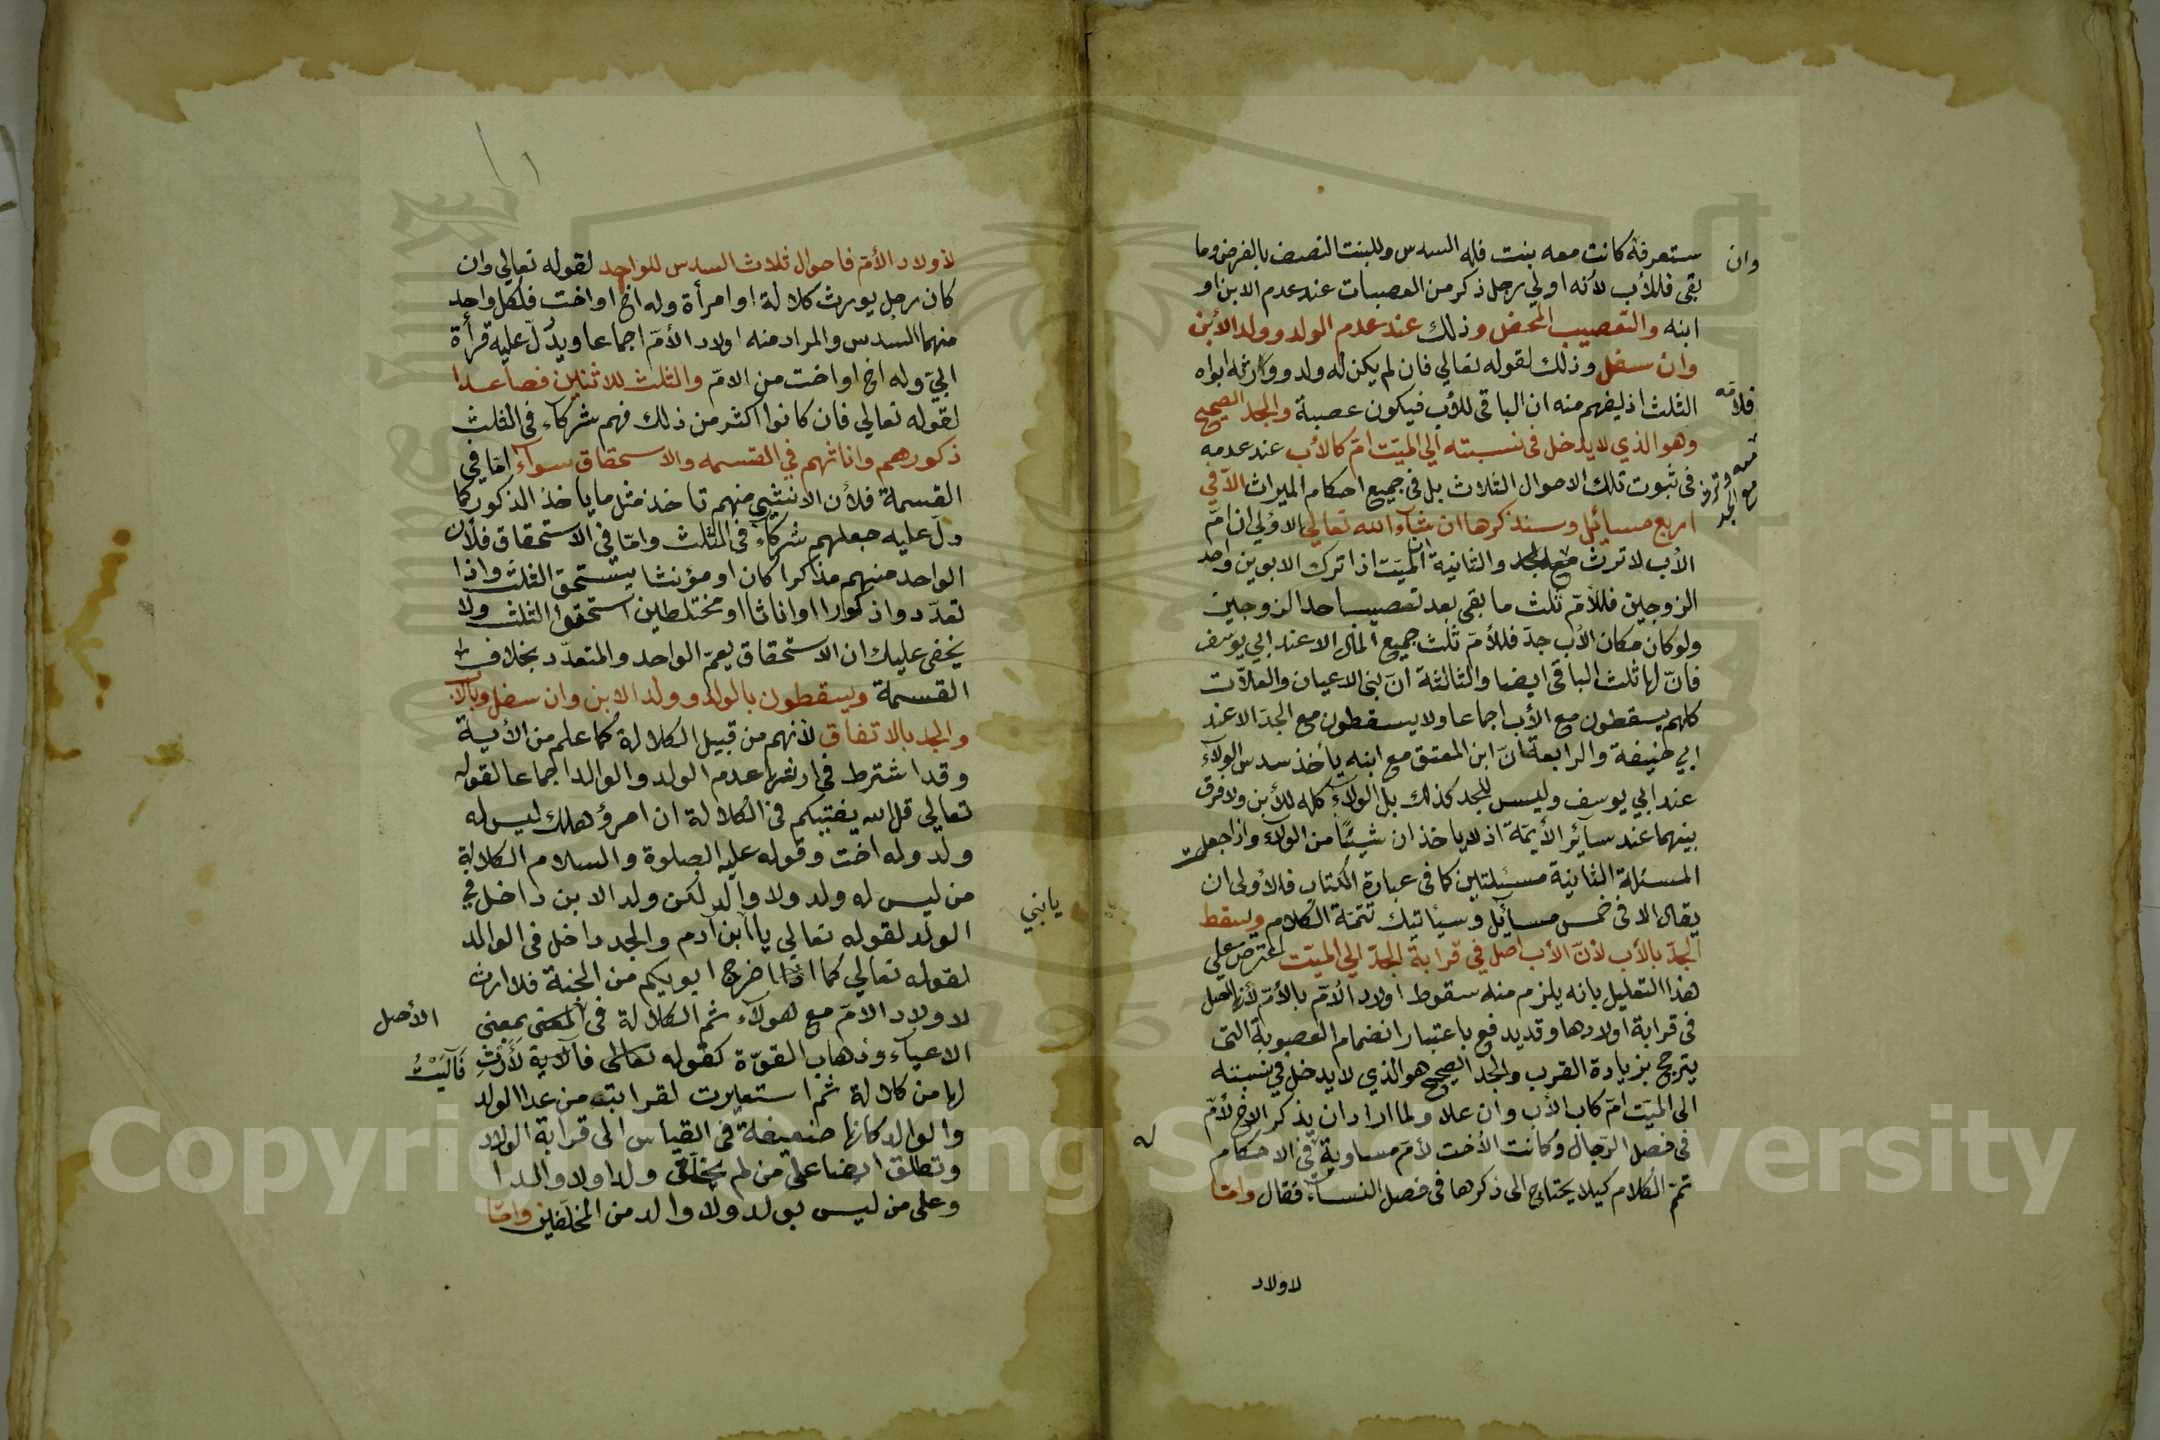 ستعرفه كانت معه بنت فله السدس وللبنت النصف بالفرض وما
وان
بقى فللأب لأنه اولي رجل ذكر من العصبات عند عدم الابن او
ابنه والتعصيب المحض وذلك عند عدم الولد وولد الأبن
وان سفل وذلك لقوله تعالي فان لم يكن له ولد وورثه ابواه
فلأمه
الثلث اذ يفهم منه ان الباقى للأب فيكون عصبة والجد الصحيح
وهو الذي لا يدخل فى نسبته الي الميت امّ كالأب عند عدمه
فى ثبوت تلك الاحوال الثلاث بل فى جميع احكام الميراث الاّ في
اربع مسائل وسنذكرها ان شآء الله تعالي الاولي ان امّ
الأب لا ترث مع الجد والثانية ان الميت اذا ترك الابوين واحد
الزوجين فللأمّ ثلث ما بقى بعد نصيب احد الزوجين
ولو كان مكان الأب جدّ فللأمّ ثلث جميع المال الا عند ابي يوسف
فانّ لها ثلث الباقى ايضا والثالثة انّ بنى الاعيان والعلاّت
كلهم يسقطون مع الأب اجماعا ولا يسقطون مع الجدّ الا عند
ابي حنيفة والرابعة انّ ابن المعتق مع ابنه يأخذ سدس الولآء
عند ابي يوسف وليس للجد كذلك بل الولآء كله للأبن ولا فرق
بينهما عند سآئر الأيمّة اذ لا ياخذ ان شيئًا من الولآء واذا جعلت
المسئلة الثانية مسئلتين كما فى عبارة الكتاب فالأولى ان
يقال الا فى خمس مسآئل وسيأتيك تتمّة الكلام ويسقط
الجدّ بالأب لأنّ الأب اصل في قرابة الجدّ الي الميت اعترض علي
هذا التعليل بانه يلزم منه سقوط اولاد الأمّ بالأمّ لأنها اصل
فى قرابة اولادها وقد يدفع باعتبار انضمام العصوبة التى
يترجح بزيادة القرب والجد الصحيح هو الذي لا يدخل في نسبته
الى الميت امّ كاب الأب وان علا ولما اراد ان يذكر الاخ لأمّ
فى فصل الرّجال وكانت الأخت لأمّ مساوية فى الاحكام
له
تمّ الكلام كيلا يحتاج الى ذكرها فى فصل النسآء فقال وامّا
لاولاد
لأولاد الأمّ فاحوال ثلاث السدس للواحد لقوله تعالي وان
كان رجل يورث كلالة او امرأة وله اخ او اخت فلكل واحد
منهما السدس والمراد منه اولاد الأمّ اجماعا ويدلّ عليه قرأة
ابيّ وله اخ او اخت من الامّ والثلث للاثنين فصاعدا
لقوله تعالي فان كانوا اكثر من ذلك فهم شركآء فى الثلث
ذكورهم واناثهم في القسمه والاستحقاق سوآء امّا في
القسمة فلأن الانثي منهم تاخذ مثل ما ياخذ الذكور كما
دلّ عليه جعلهم شركآء فى الثلث وامّا في الاستحقاق فلأن
الواحد منهم مذكرا كان او مؤنثا يستحق الثلث واذا
تعدّدوا ذكورا او اناثا او مختلطين استحقوا الثلث ولا
يخفى عليك ان الاستحقاق يعمّ الواحد والمتعدّد بخلاف
القسمة ويسقطون بالولد وولد الابن وان سفل وبالأب
والجد بالاتفاق لأنهم من قبيل الكلالة كما علم من الأية
وقد اشترط في ارثها عدم الولد والوالد اجماعا لقوله
تعالي قل الله يفتيكم فى الكلالة ان امرؤ هلك ليس له
ولد وله اخت وقوله عليه الصلوة والسلام الكلالة
من ليس له ولد ولا والد لكن ولد الابن داخل في
يا بني
الولد لقوله تعالي يا ابن آدم والجد داخل فى الوالد
لقوله تعالي كما اخرج ابويكم من الجنة فلا ارث
لاولاد الامّ مع هولآء ثم الكلالة فى المعنى بمعنى
الأصل
الاعيآء وذهاب القوّة كقوله تعالى فآلاية لأرث
فَآلَيْتُ
لها من كلالة ثم استعيرت لقرابته من عدا الولد
والوالد كانها ضعيفة فى القياس الى قرابة الولاد
وتطلق ايضا على من لم يخلّف ولدا ولا والدا
وعلى من ليس بولد ولا والد من المخلّفين وامّا
Copyright © King Saud University
1957